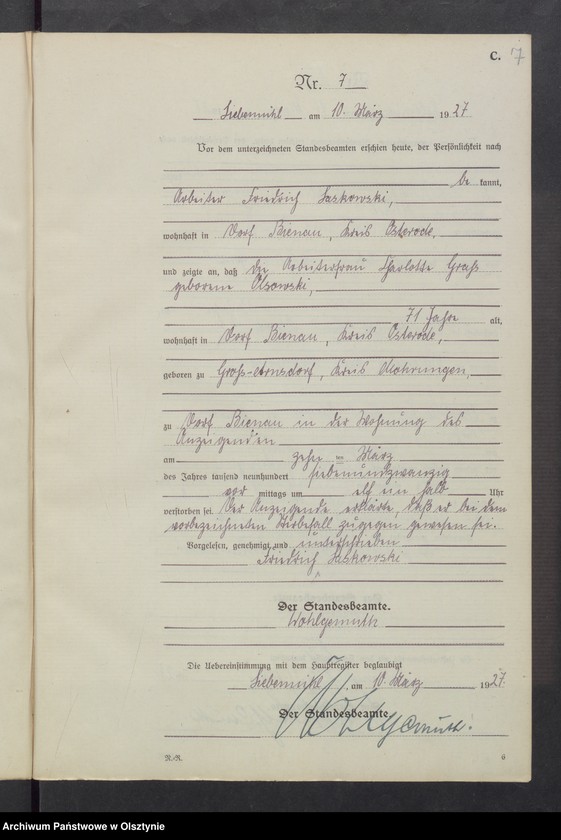 C. 7
Nr. 7
Liebemühl am 10. März 1927
Vor dem unterzeichneten Standesbeamten erschien heute, der Persönlichkeit nach
be kannt,
Arbeiter Friedrich Saskowski,
wohnhaft in Dorf Bienau, Kreis Osterode,
und zeigte an, daß die Arbeiterfrau Charlotte Groß
geborene Olsowski,
71 Jahre alt,
wohnhaft in Dorf Bienau, Kreis Osterode,
geboren zu Groß-Arnsdorf, Kreis Mohrungen,
zu Dorf Bienau in der Wohnung des
Anzeigenden
am zehn ten März
des Jahres tausend neunhundert siebenundzwanzig
vor mittags um elf ein halb Uhr
verstorben sei. Der Anzeigende erklärte, daß er bei dem
vorbezeichneten Sterbefall zugegen gewesen sei.
Vorgelesen, genehmigt und unterschrieben
Friedrich Saskowski
Der Standesbeamte.
Wohlgemuth
Die Uebereinstimmung mit dem Hauptregister beglaubigt
Liebemühl, am 10. März 1927.
Der Standesbeamte
Wohlgemuth.
6
Archiwum Państwowe w Olsztynie